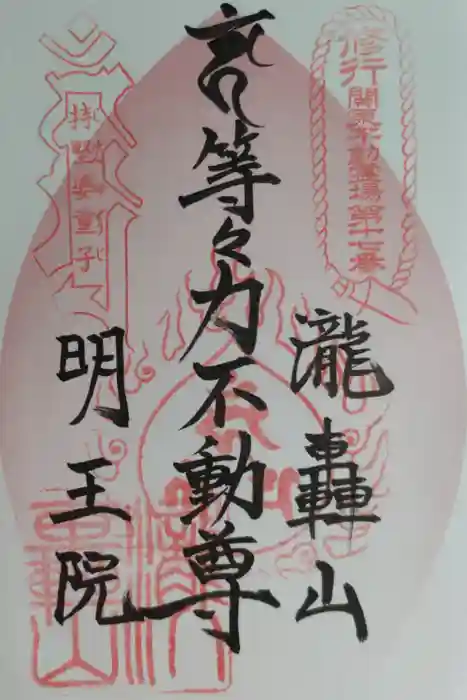 修行
關東不動霊場第十七番
瀧轟山
等々力不動尊
持堅婆童子
明王院